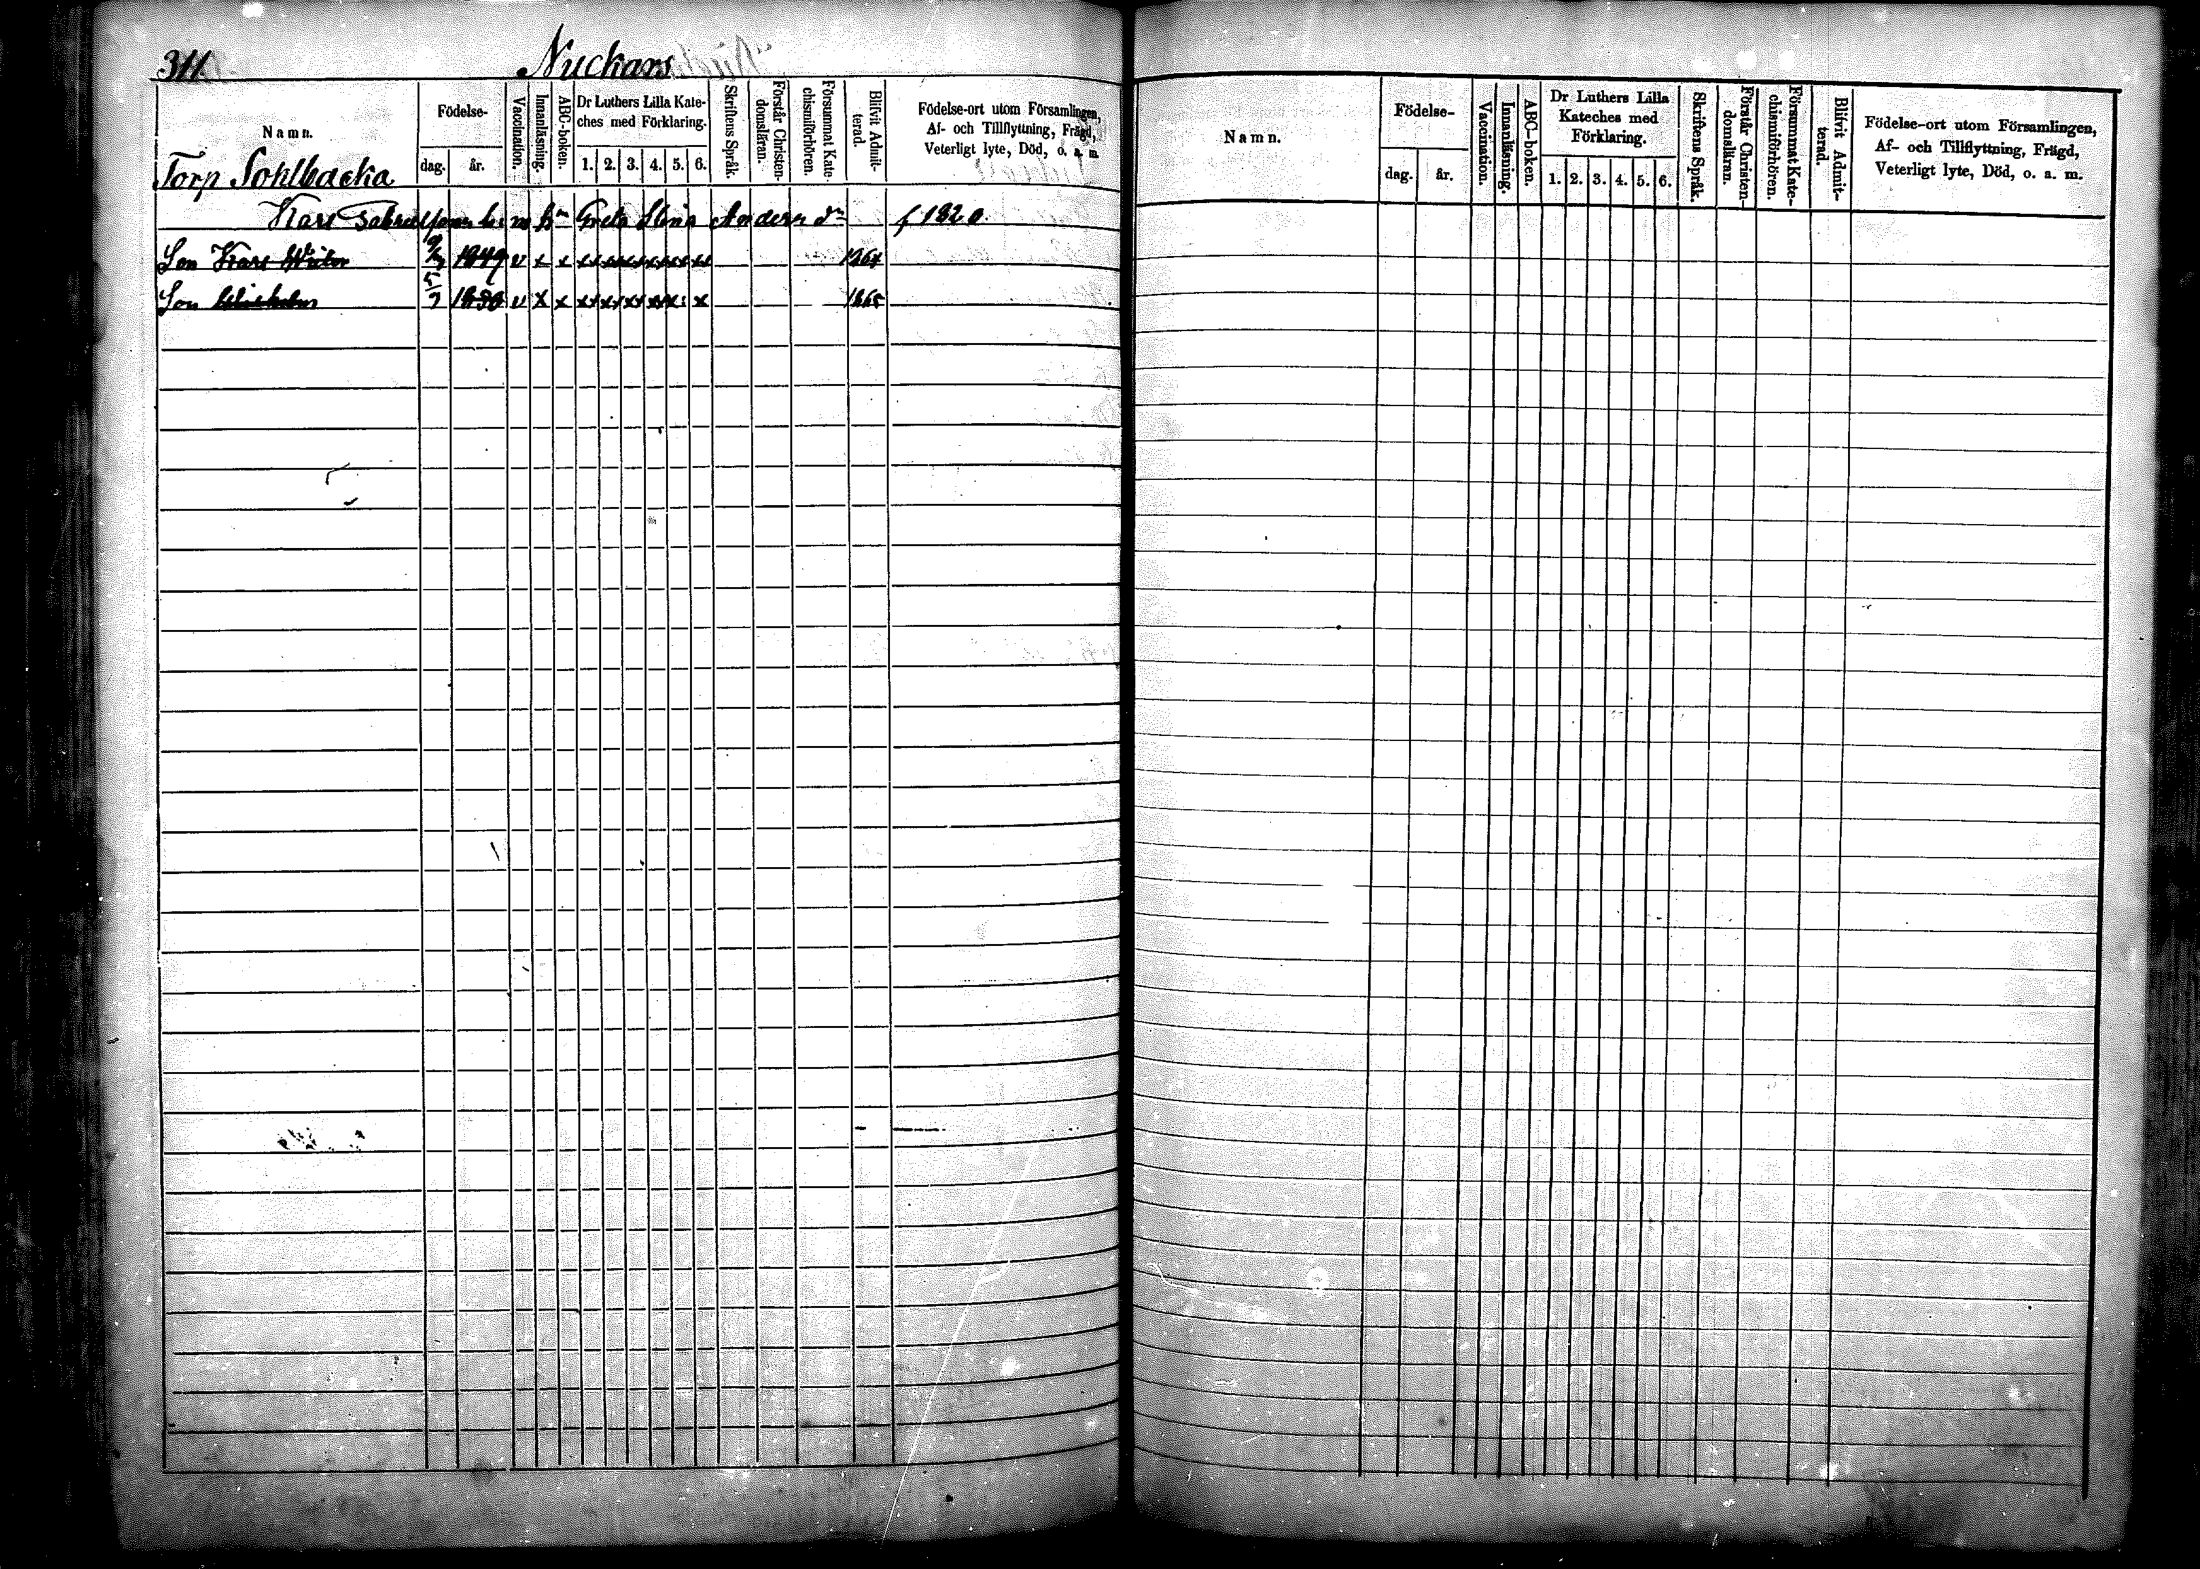 311.
Nuckars
Namn.
Födelse-
dag. år.
Vaccination.
Innanläsning.
ABC-boken.
Dr Luthers Lilla Kate-
ches med Förklaring.
1. 2. 3. 4. 5. 6.
Skriftens Språk.
Förstår Christen-
domsläran.
Försummat Kate-
chismiförhören.
Blifvit Admit-
terad.
Födelse-ort utom Församlingen,
Af- och Tillflyttning, Frägd,
Veterligt lyte, Död, o. a. m.
Torp Sohlbacka
Karl Gabriel Greta Stina Anders dr f 1820.
Son Karl 9/2 1849 v x x xx xx xx xx xx xx 1864
Son Wilhelm 5/7 1850 v x x xx xx xx xx x x 1865
Namn.
Födelse-
dag. år.
Vaccination.
Innanläsning.
ABC-boken.
Dr Luthers Lilla
Kateches med
Förklaring.
1. 2. 3. 4. 5. 6.
Skriftens Språk.
Förstår Christen-
domsläran.
Försummat Kate-
chismiförhören.
Blifvit Admit-
terad.
Födelse-ort utom Församlingen,
Af- och Tillflyttning, Frägd,
Veterligt lyte, Död, o. a. m.